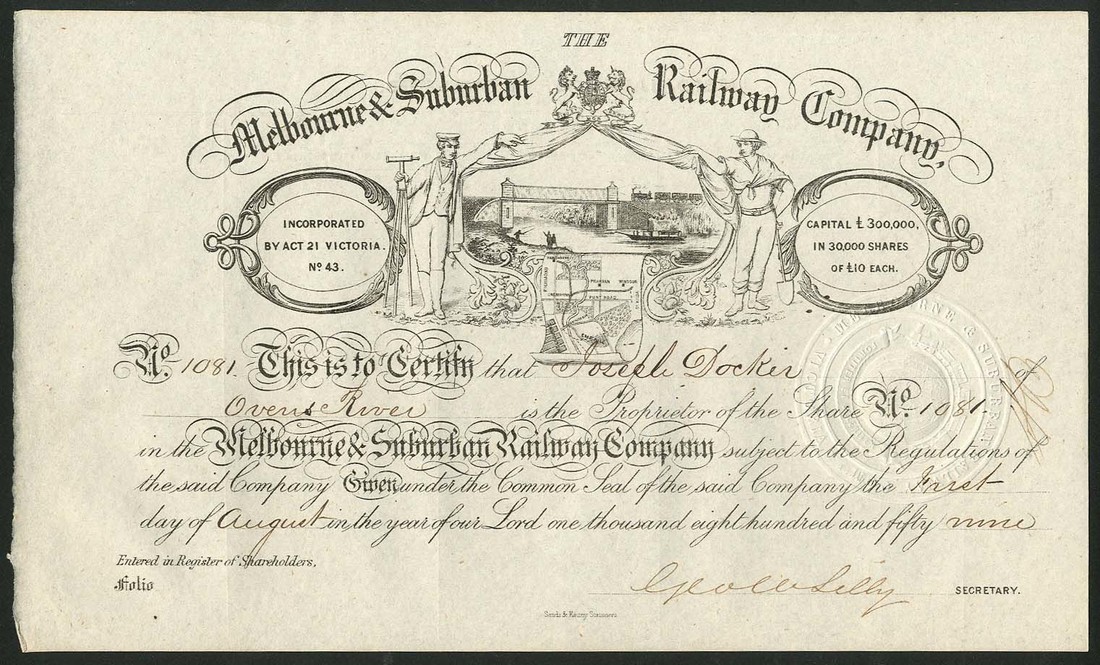 THE
Melbourne & Suburban Railway Company,
INCORPORATED
BY ACT 21 VICTORIA.
No 43.
CAPITAL £300,000,
IN 30,000 SHARES
OF £10 EACH.
PRAHRAN WINDSOR
PUNT ROAD
No. 1081. This is to Certify that Joseph Docker of
Ovens River is the Proprietor of the Share No. 1081
in the Melbourne & Suburban Railway Company subject to the Regulations of
the said Company Given under the Common Seal of the said Company the First
day of August in the year of our Lord one thousand eight hundred and fifty nine
Entered in Register of Shareholders,
Folio
SECRETARY.